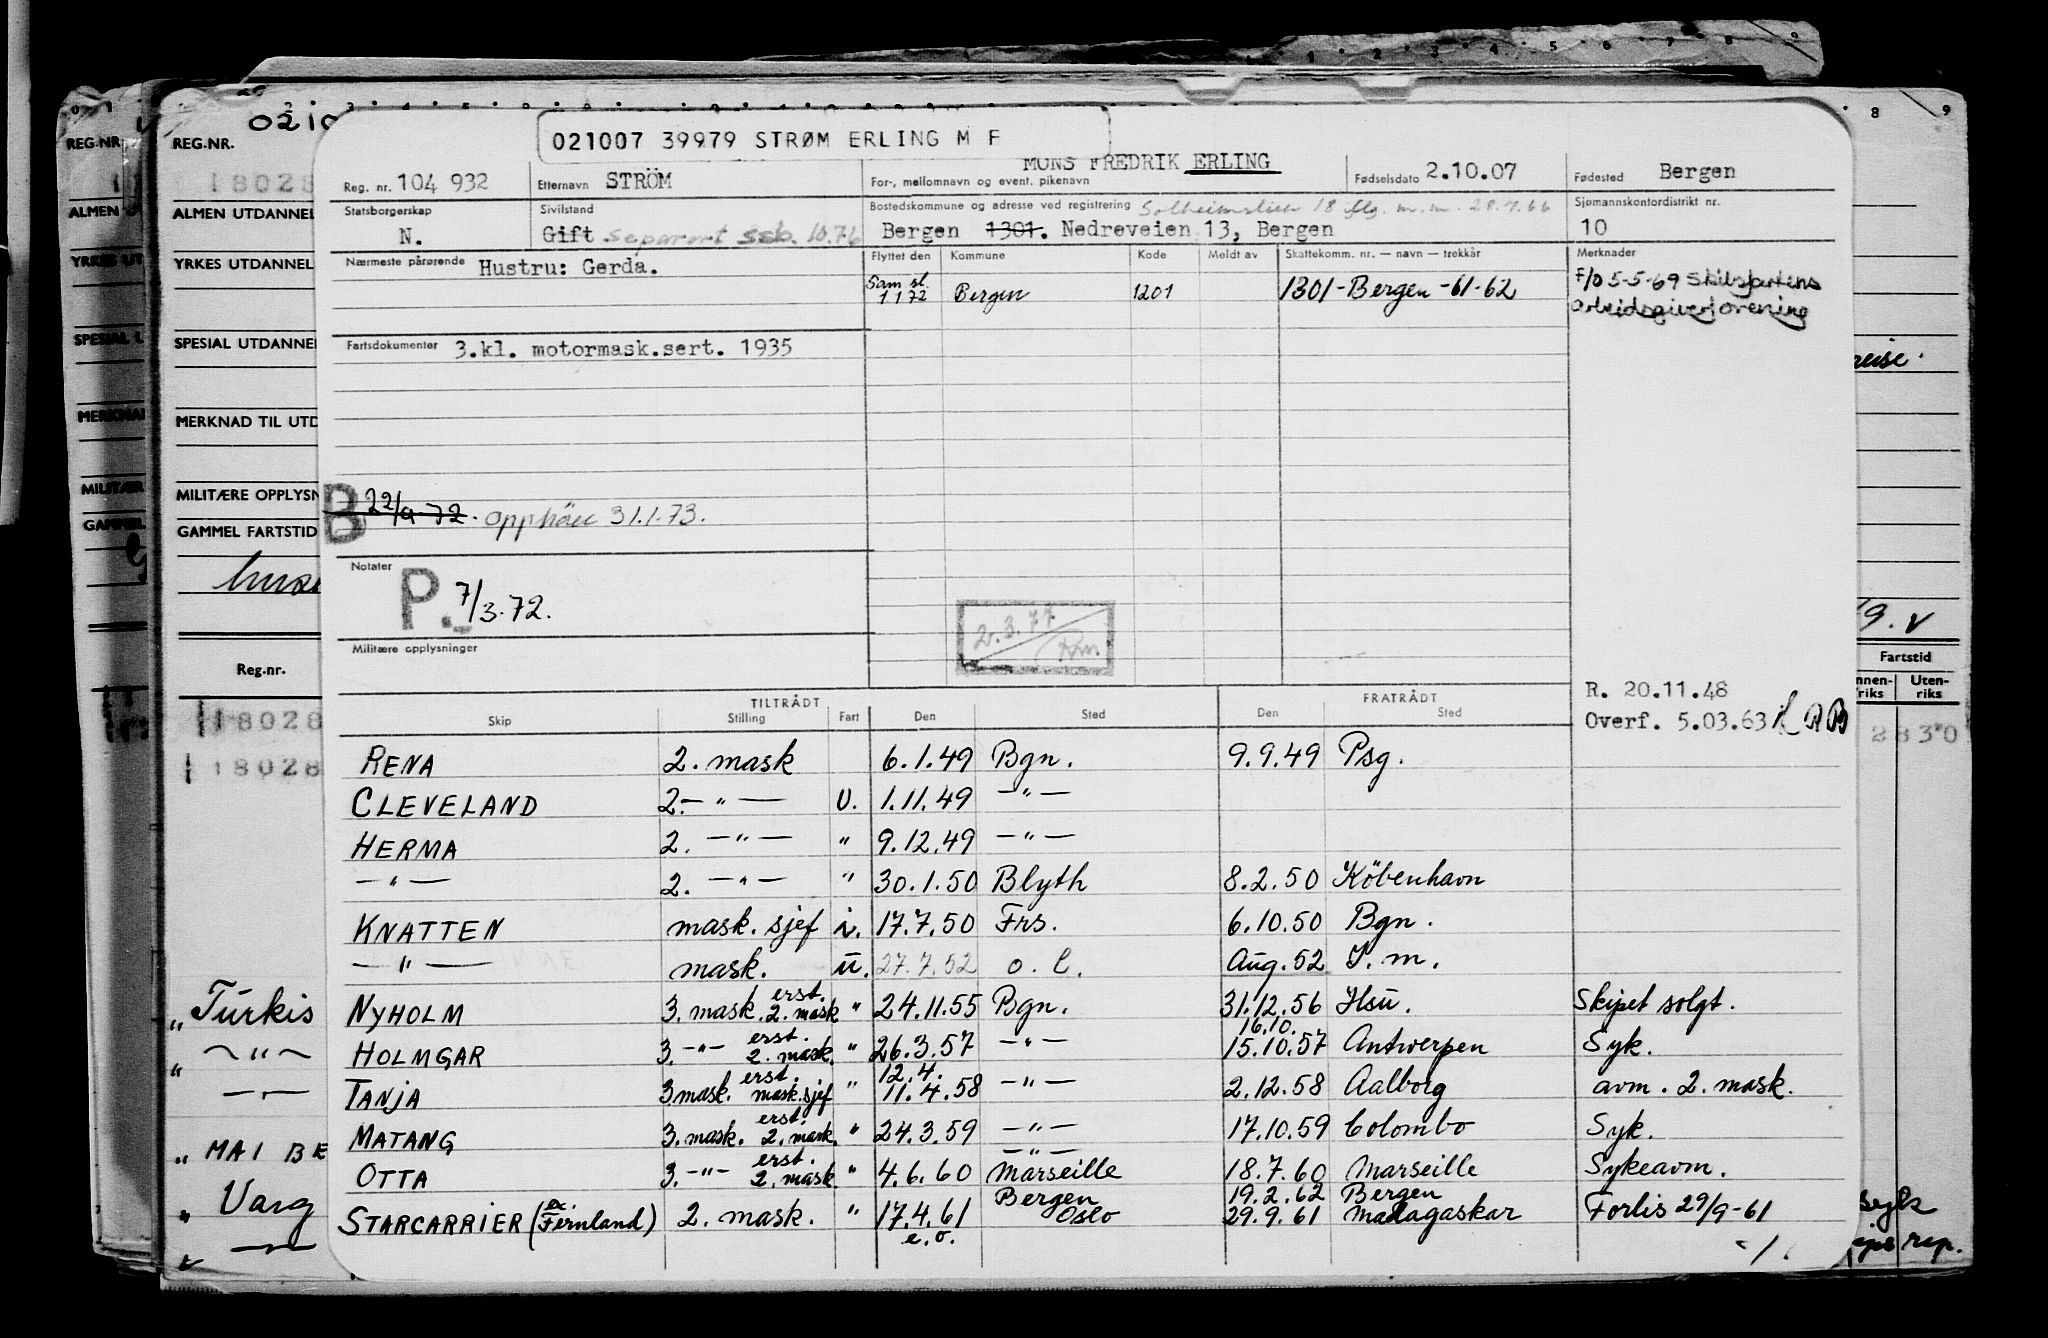 021007 39979 STRØM ERLING M F
Reg. nr. 104 932 Etternavn STRÖM For-, mellomnavn og event. pikenavn MONS FREDRIK ERLING Fødselsdato 2.10.07 Fødested Bergen
Statsborgerskap N. Sivilstand Gift separert ssb. 10.76 Bostedskommune og adresse ved registrering Solheimslien 18 flg. m.m. 28.9.66 Sjømannskontordistrikt nr. 10
Bergen 1301. Nedreveien 13, Bergen
Nærmeste pårørende Hustru: Gerda. Flyttet den Kommune Kode Meldt av Skattekomm. nr. — navn — trekkår Merknader
Sam sl. 1 1 72 Bergen 1201 1301-Bergen-61-62 F/o 5-5-69 Skipsfartens
arbeidsgiverforening
Fartsdokumenter 3.kl. motormask.sert. 1935
B 22/9-72. opphäv 31.1.73.
Notater P. 7/3.72.
2.3.77 Rm.
Militære opplysninger
R. 20.11.48
Overf. 5.03.63 RB
TILTRÅDT FRATRÅDT
Skip Stilling Fart Den Sted Den Sted
RENA 2. mask 6.1.49 Bgn. 9.9.49 Psg.
CLEVELAND 2. —"— U. 1.11.49 —"—
HERMA 2. —"— " 9.12.49 —"—
—"— 2. —"— " 30.1.50 Blyth 8.2.50 Köbenhavn
KNATTEN mask. sjef i. 17.7.50 Frs. 6.10.50 Bgn.
—"— mask. u. 27.7.52 o. l. Aug. 52 S. m.
NYHOLM 3. mask. erst. 2. mask " 24.11.55 Bgn. 31.12.56 Hsu. Skipet solgt.
HOLMGAR 3. —"— erst. 2. mask. " 26.3.57 —"— 16.10. 15.10.57 Antwerpen Syk.
TANJA 3 mask. erst. mask.sjef " 12.4. 11.4.58 —"— 2.12.58 Aalborg avm. 2. mask.
MATANG 3. mask. erst. 2. mask. " 24.3.59 —"— 17.10.59 Colombo Syk.
OTTA 3. —"— erst. 2. mask. " 4.6.60 —"— Marseille 18.7.60 Marseille Sykeavm.
STARCARRIER (ex. Fernland) 2. mask. " 17.4.61 e.o. Bergen Oslo 19.2.62 Bergen 29.9.61 Madagaskar Forlis 29/9-61
-/.
0210
REG.NR.
18028
ALMEN UTDANNEL
YRKES UTDANNEL
SPESIAL UTDANNEL
MERKNAD TIL UTD
MILITÆRE OPPLYSN
GAMMEL FARTSTID
Reg.nr.
18028
18028
" Turkis
" —"—
—"—
" MAI BE
" Varg
REG.NR
ALMEN
YRKES UT
SPESIAL
MERKNAD
MILITÆR
GAMMEL
8 9
reise.
19. v
Fartstid
nnen-riks Uten-riks
2830
syk
rep.